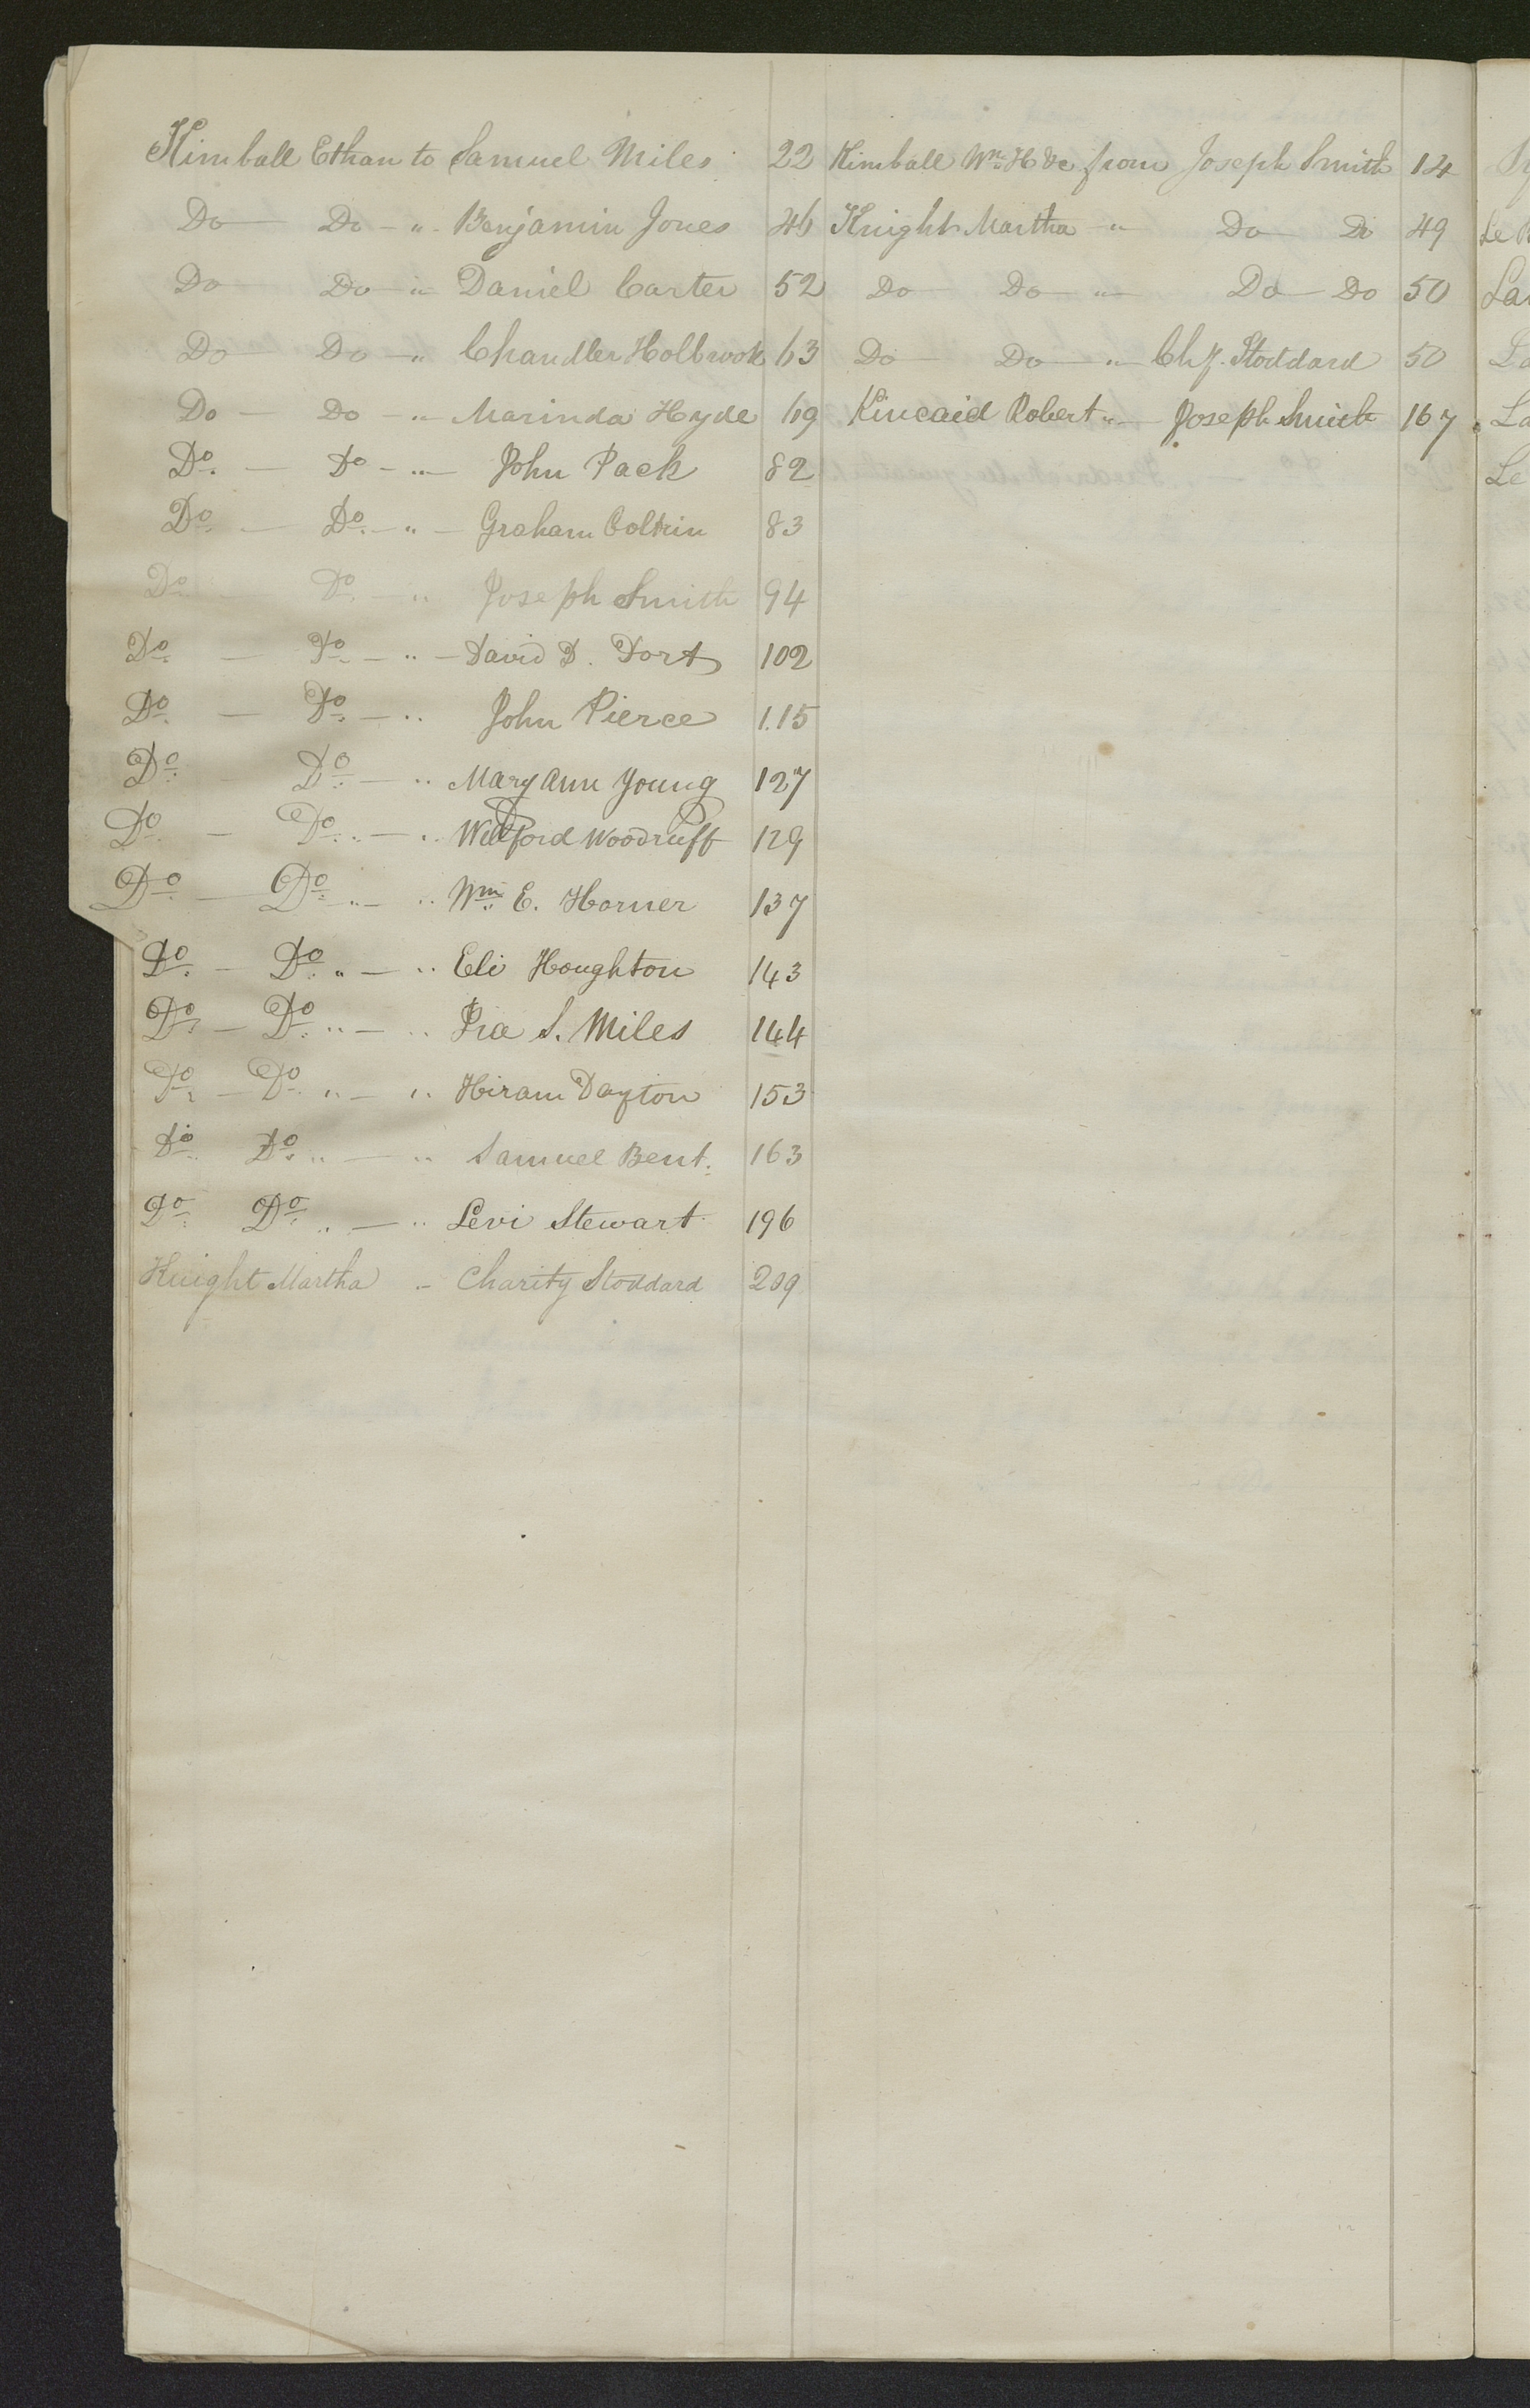 Kimball Ethan to Samuel Miles 22
Do — Do — " Benjamin Jones 46
Do — Do — " Daniel Carter 52
Do — Do — " Chandler Holbrook 63
Do — Do — " Marinda Hyde 69
Do. — Do — " — John Pack 82
Do. — Do. — " — Graham Coltrin 83
Do. — Do. — " Joseph Smith 94
Do. — Do. — " — David D. Dort 102
Do. — Do. — " John Pierce 115
Do. — Do. — " Mary Ann Young 127
Do. — Do. " — " Willford Woodruff 129
Do. — Do. " — " Wm. E. Horner 137
Do. — Do. " — " Eli Houghton 143
Do. — Do. " — " Ira S. Miles 144
Do. — Do. " — " Hiram Dayton 153
Do. Do. " — " Samuel Bent. 163
Do. Do. " — " Levi Stewart 196
Knight Martha — Charity Stoddard 209
Kimball Wm. H &c from Joseph Smith 14
Knight Martha — " Do — Do 49
Do — Do — " — Do — Do 50
Do — Do — " — Stoddard 50
Kincaid Robert " — Joseph Smith 167
Le
La
La
La
Le